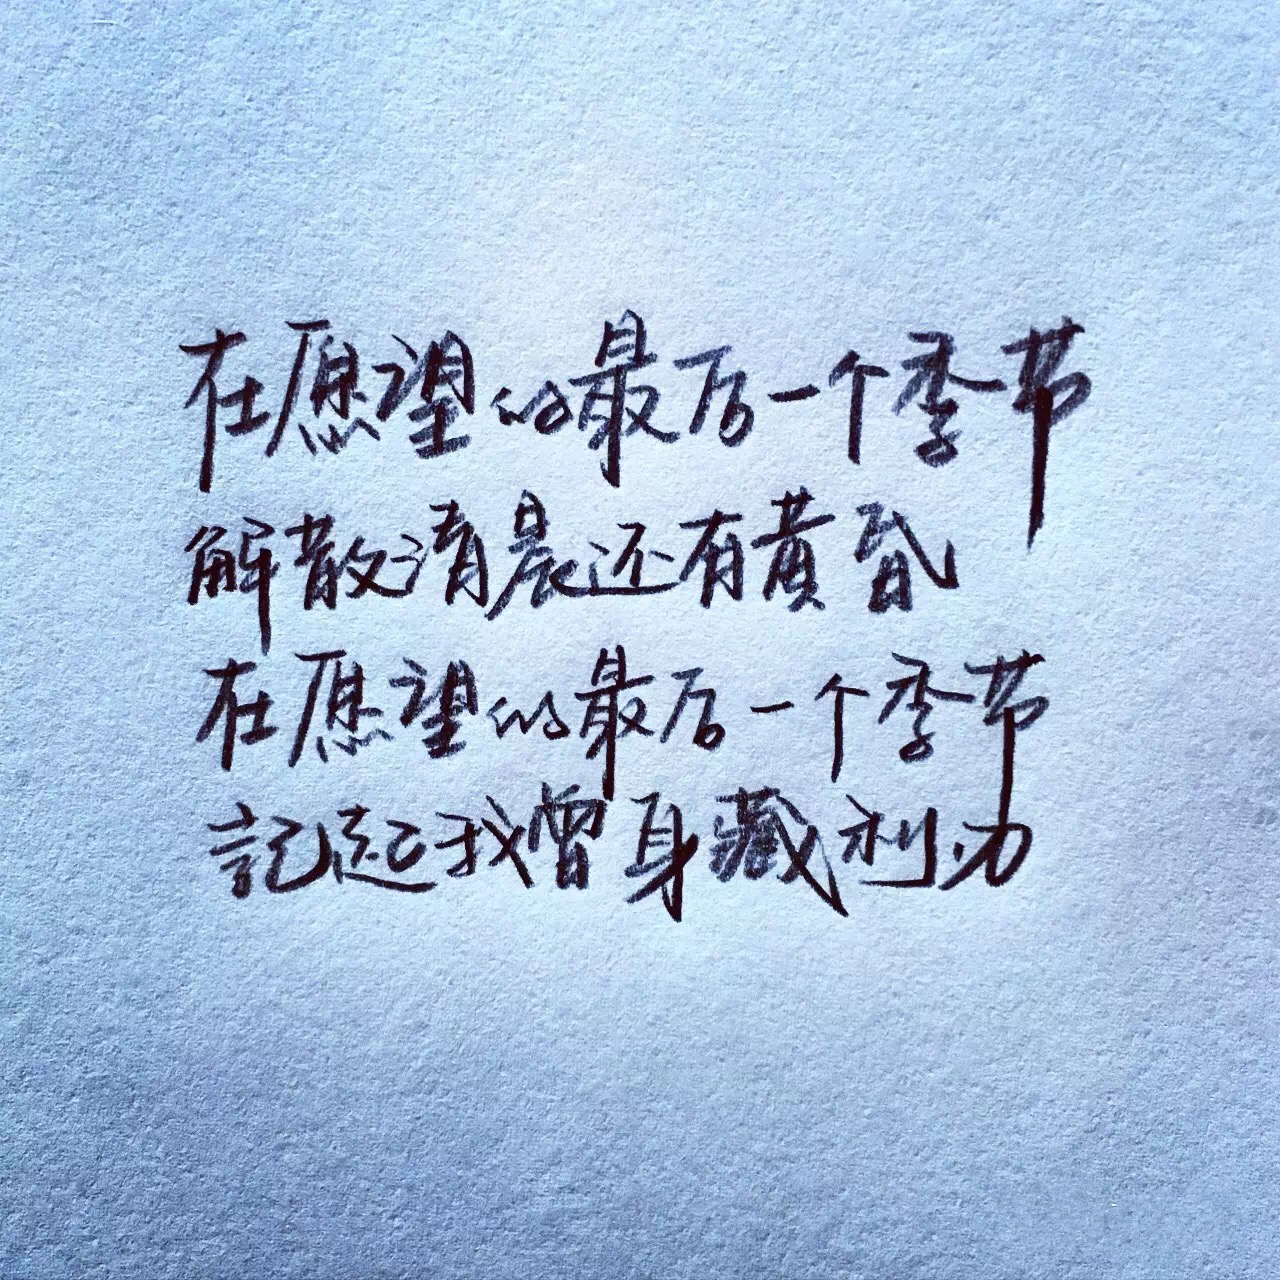 在愿望的最后一个季节
解散清晨还有黄昏
在愿望的最后一个季节
記起我曾身藏利刃